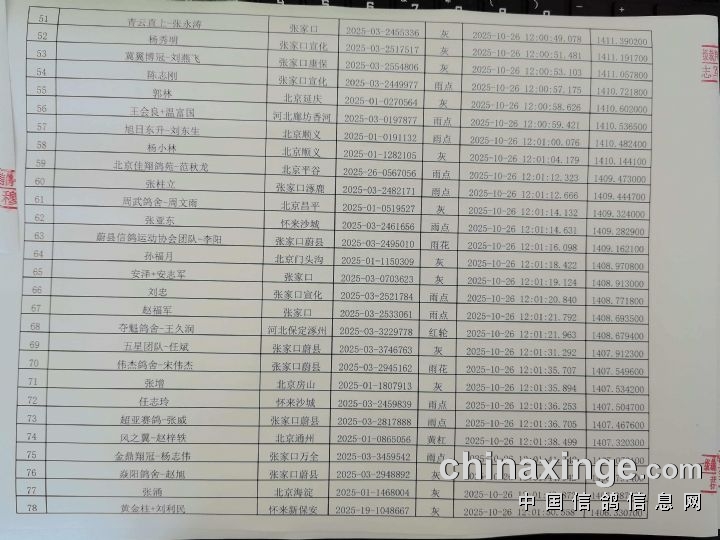 51 青云直上-张永涛 张家口 2025-03-2455336 灰 2025-10-26 12:00:49.078 1411.390200
52 杨秀明 张家口宣化 2025-03-2517517 灰 2025-10-26 12:00:51.481 1411.191700
53 冀翼博冠-刘燕飞 张家口康保 2025-03-2554806 灰 2025-10-26 12:00:53.103 1411.057800
54 陈志刚 张家口宣化 2025-03-2449977 雨点 2025-10-26 12:00:57.175 1410.721800
55 郭林 北京延庆 2025-01-0270564 灰 2025-10-26 12:00:58.626 1410.602000
56 王会良+温富国 河北廊坊香河 2025-03-0197877 雨点 2025-10-26 12:00:59.421 1410.536500
57 旭日东升-刘东生 北京顺义 2025-01-0191132 雨点 2025-10-26 12:01:00.076 1410.482400
58 杨小林 北京顺义 2025-01-1282105 灰 2025-10-26 12:01:04.179 1410.144100
59 北京佳翔鸽苑-范秋龙 北京平谷 2025-26-0567056 雨点 2025-10-26 12:01:12.323 1409.473000
60 张桂立 张家口涿鹿 2025-03-2482171 雨点 2025-10-26 12:01:12.666 1409.444700
61 周武鸽舍-周文雨 北京昌平 2025-01-0519527 灰 2025-10-26 12:01:14.132 1409.324000
62 张亚东 怀来沙城 2025-03-2461656 雨点 2025-10-26 12:01:14.631 1409.282900
63 蔚县信鸽运动协会团队-李阳 张家口蔚县 2025-03-2495010 雨花 2025-10-26 12:01:16.098 1409.162100
64 孙福月 北京门头沟 2025-01-1150309 灰 2025-10-26 12:01:18.422 1408.970800
65 安泽+安志军 张家口 2025-03-0703623 灰 2025-10-26 12:01:19.124 1408.913000
66 刘忠 张家口宣化 2025-03-2521784 雨点 2025-10-26 12:01:20.840 1408.771800
67 赵福军 张家口 2025-03-2533061 雨点 2025-10-26 12:01:21.792 1408.693500
68 夺魁鸽舍-王久润 河北保定涿州 2025-03-3229778 红轮 2025-10-26 12:01:21.963 1408.679400
69 五星团队-任斌 张家口蔚县 2025-03-3746763 灰 2025-10-26 12:01:31.292 1407.912300
70 伟杰鸽舍-宋伟杰 张家口蔚县 2025-03-2945162 雨花 2025-10-26 12:01:35.707 1407.549600
71 张增 北京房山 2025-01-1807913 灰 2025-10-26 12:01:35.894 1407.534200
72 任志玲 怀来沙城 2025-03-2459839 雨点 2025-10-26 12:01:36.253 1407.504700
73 超亚赛鸽-张威 张家口蔚县 2025-03-2817888 雨点 2025-10-26 12:01:36.705 1407.467600
74 风之翼-赵梓轶 北京通州 2025-01-0865056 黄杠 2025-10-26 12:01:38.499 1407.320300
75 金鼎翔冠-杨志伟 张家口万全 2025-03-3459542 雨点
76 焱阳鸽舍-赵旭 张家口蔚县 2025-03-2948892 灰
77 张涌 北京海淀 2025-01-1468004 灰
78 黄金柱+刘利民 怀来新保安 2025-19-1048667 灰 2025-10-26
chinaxinge.com
中国信鸽信息网